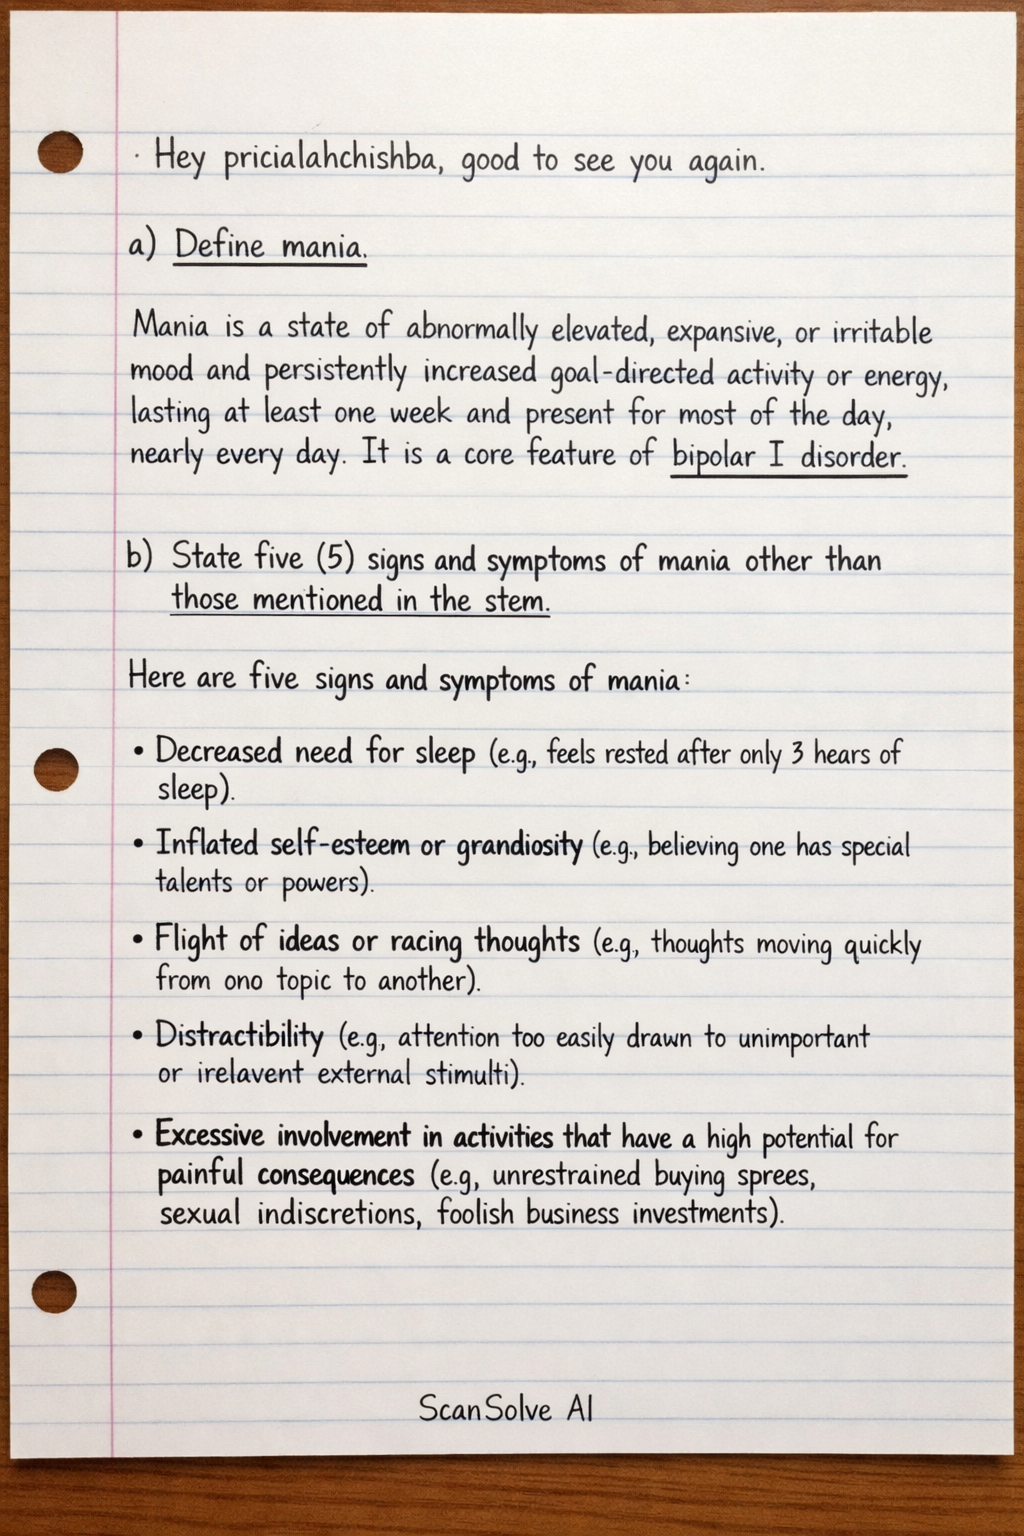 · Hey pricialahchishba, good to see you again.
a) Define mania.
Mania is a state of abnormally elevated, expansive, or irritable
mood and persistently increased goal-directed activity or energy,
lasting at least one week and present for most of the day,
nearly every day. It is a core feature of bipolar I disorder.
b) State five (5) signs and symptoms of mania other than
those mentioned in the stem.
Here are five signs and symptoms of mania:
• Decreased need for sleep (e.g., feels rested after only 3 hears of
sleep).
• Inflated self-esteem or grandiosity (e.g., believing one has special
talents or powers).
• Flight of ideas or racing thoughts (e.g., thoughts moving quickly
from ono topic to another).
• Distractibility (e.g., attention too easily drawn to unimportant
or irelavent external stimulti).
• Excessive involvement in activities that have a high potential for
painful consequences (e.g, unrestrained buying sprees,
sexual indiscretions, foolish business investments).
ScanSolve AI